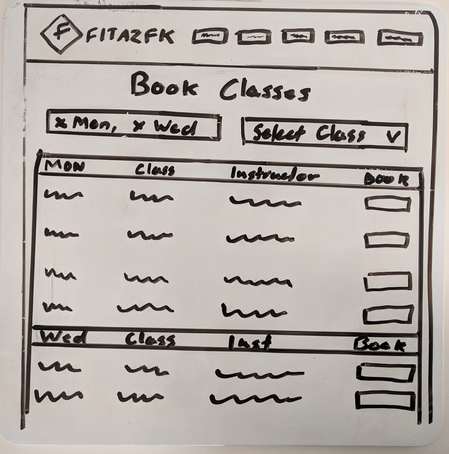 F FITAZFK
Book Classes
x Mon, x Wed
Select Class V
Mon Class Instructor Book
Wed Class Inst Book